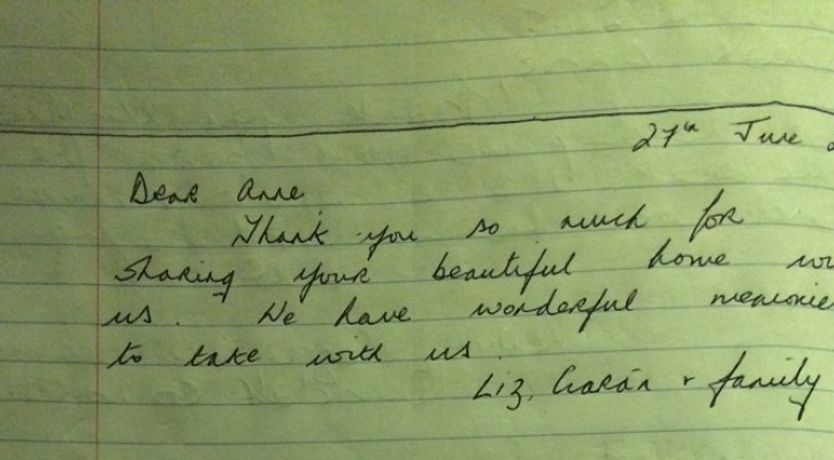 27th June
Dear Anne,
Thank you so much for
sharing your beautiful home
us. We have wonderful memorie
to take with us.
Liz, Ciarán + family